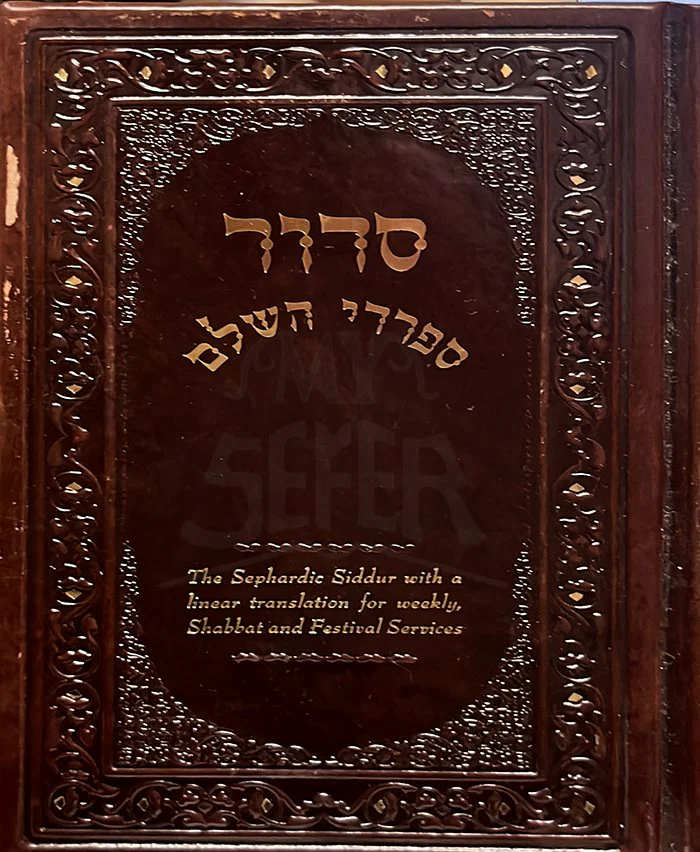 סדור
ספרדי השלם
MY
SEFER
The Sephardic Siddur with a
linear translation for weekly,
Shabbat and Festival Services